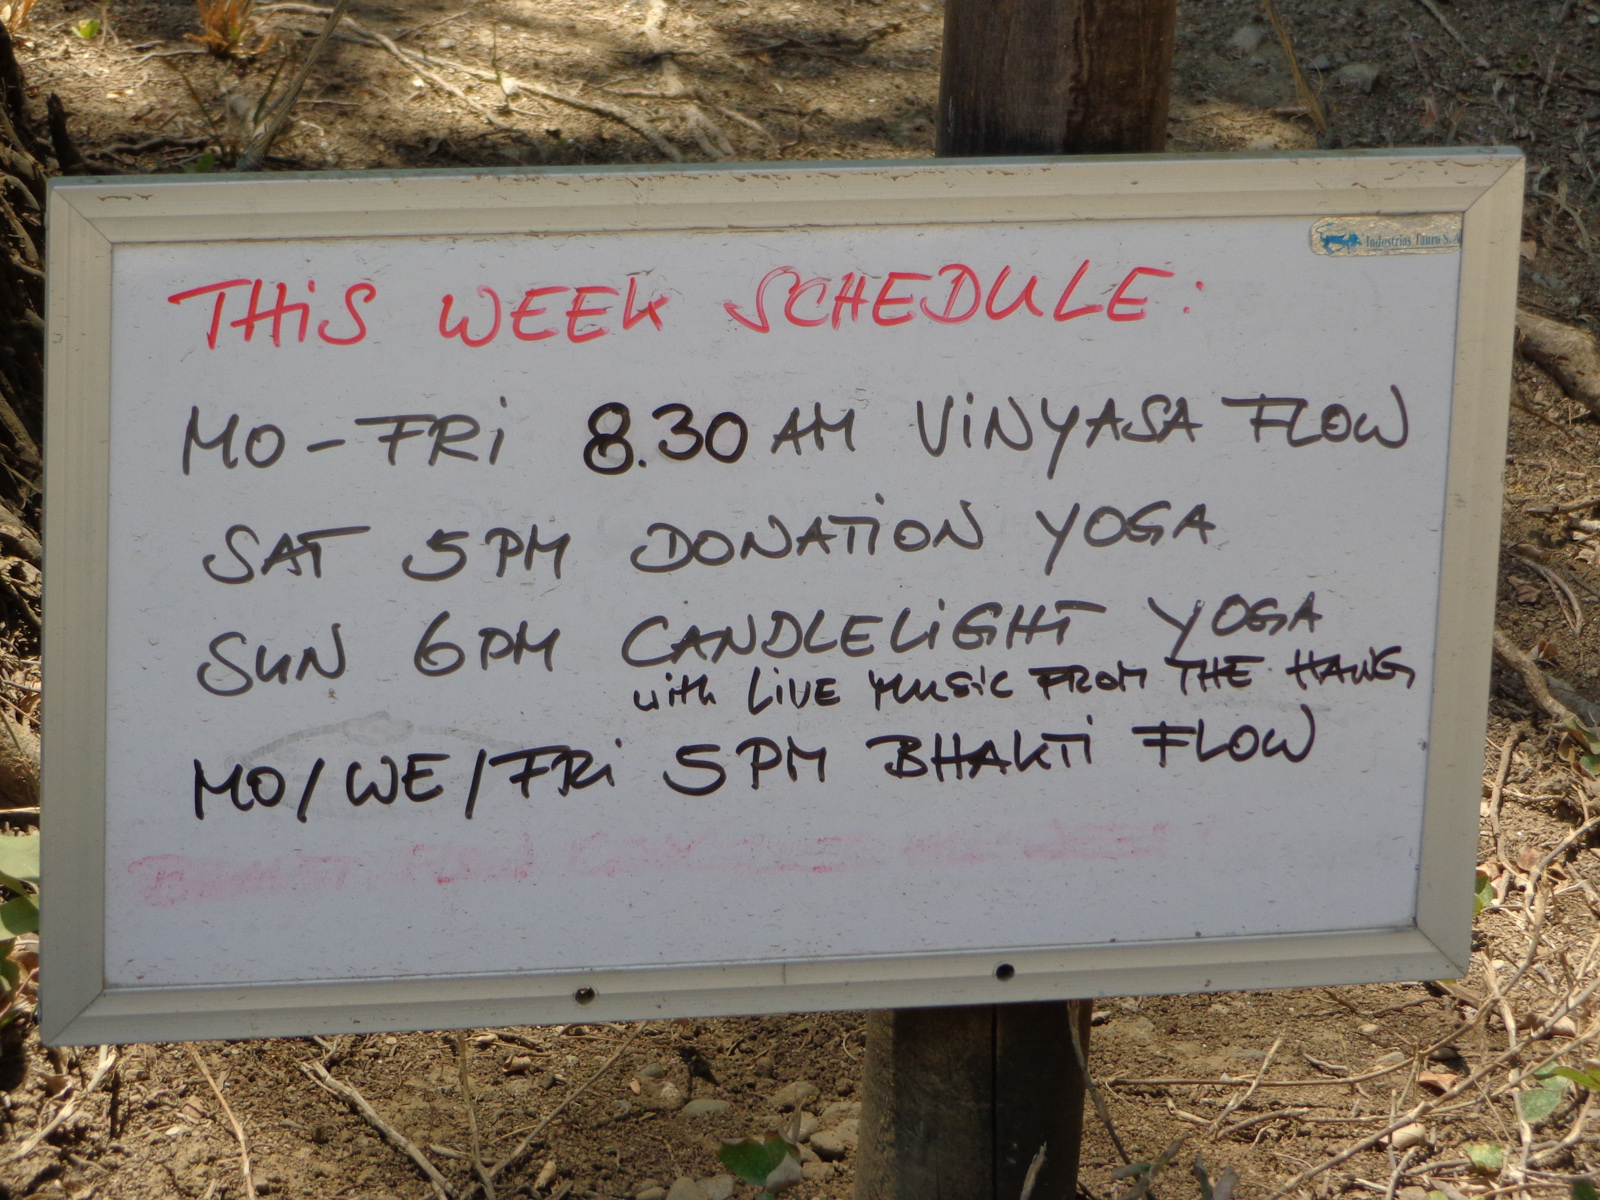 Industrias Tauro S. A
THiS WEEK SCHEDULE:
MO-FRi 8.30 AM ViNYASA FLOW
SAT 5 PM DONATiON YOGA
SUN 6 PM CANDLELiGHT YOGA
with LiVE MUSiC FROM THE HANG
MO/WE/FRi 5 PM BHAKTi FLOW